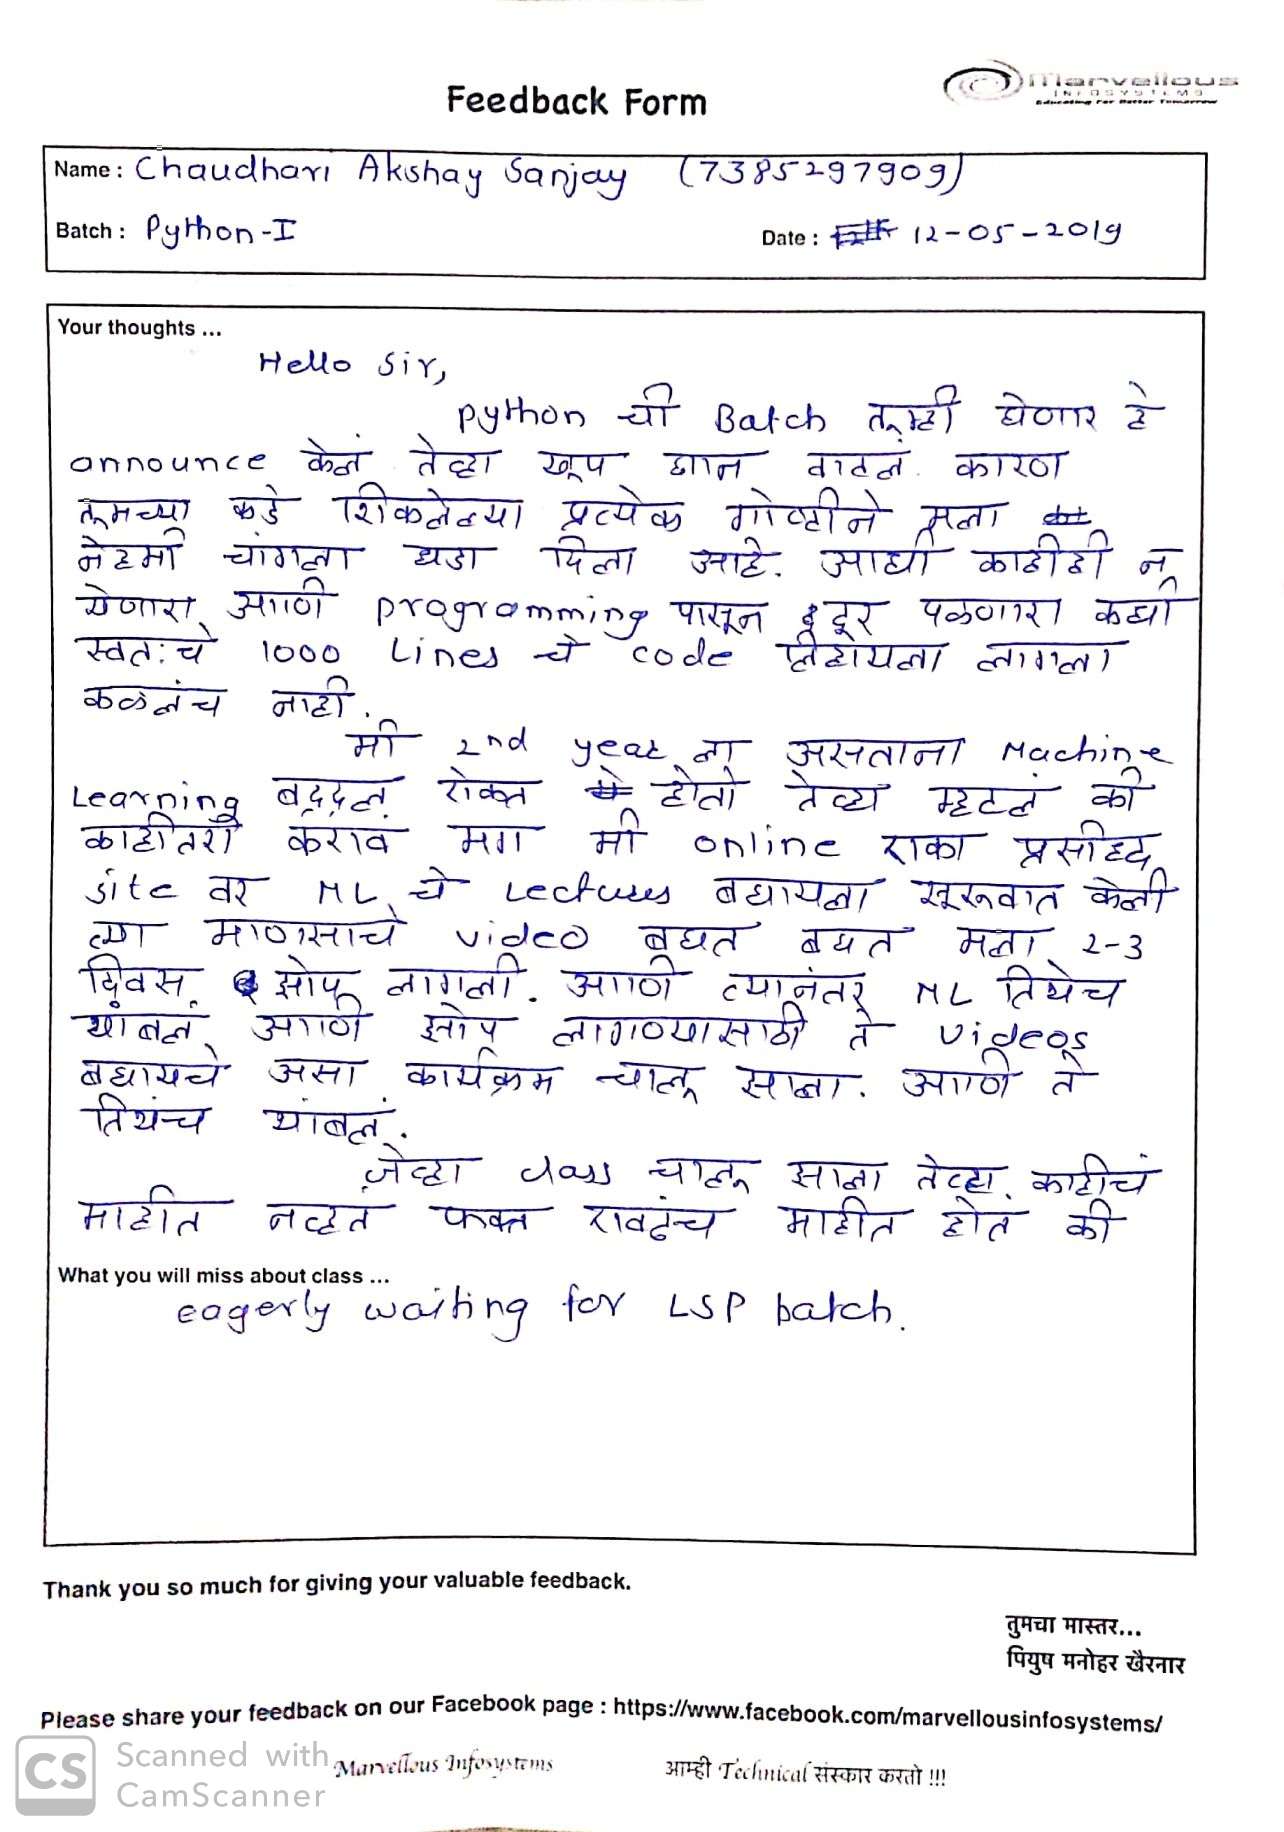 Feedback Form
Marvellous
INFOSYSTEMS
Educating For Better Tomorrow
Name : Chaudhari Akshay Sanjay (7385297909)
Batch : Python-I
Date : 12-05-2019
Your thoughts ...
Hello Sir,
python ची Batch तूम्ही घेणार हे
announce केलं तेव्हा खूप छान वाटलं. कारण
तूमच्या कडे शिकलेल्या प्रत्येक गोष्टीने मला
नेहमी चांगला धडा दिला आहे. आधी काहीही न
येणारा आणि programming पासून दूर पळणारा कधी
स्वत:चे 1000 Lines चे code लिहायला लागला
कळलंच नाही.
मी 2nd year ला असताना Machine
Learning बद्दल ऐकल होतो तेव्हा म्हटलं की
काहीतरी कराव मग मी online एका प्रसीद्ध
site वर ML चे Lectures बघायला सूरूवात केली
त्या माणसाचे video बघत बघत मला 2-3
दिवस झोप लागली. आणि त्यानंतर ML तिथेच
थांबलं आणि झोप लागण्यासाठी ते videos
बघायचे असा कार्यक्रम चालू झाला. आणि ते
तिथंच थांबलं.
जेव्हा class चालू झाला तेव्हा काहीचं
माहीत नव्हत फक्त एवढंच माहीत होत की
What you will miss about class ...
eagerly waiting for LSP batch.
Thank you so much for giving your valuable feedback.
तुमचा मास्तर...
पियुष मनोहर खैरनार
Please share your feedback on our Facebook page : https://www.facebook.com/marvellousinfosystems/
CS Scanned with CamScanner
Marvellous Infosystems आम्ही Technical संस्कार करतो !!!